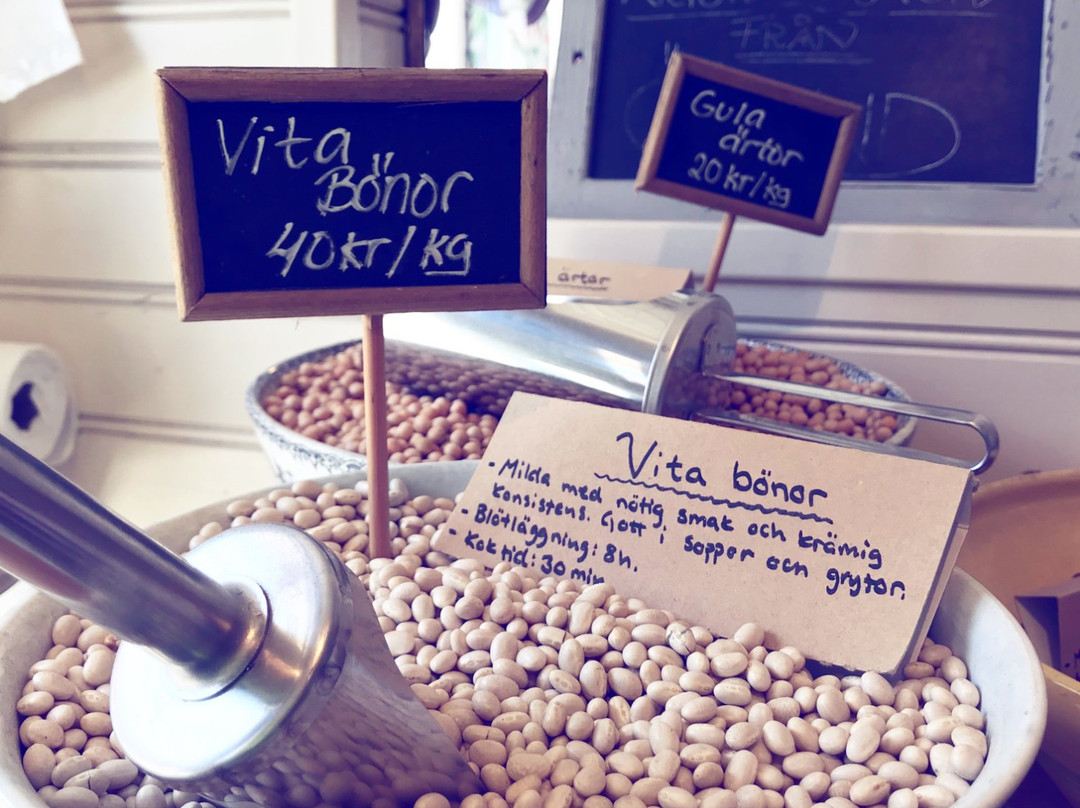 FRÅN
Vita
Bönor
40kr/kg
Gula
ärtor
20kr/kg
ärtor
Vita bönor
- Milda med nötig smak och krämig
konsistens. Gott i soppor och grytor.
- Blötläggning: 8h.
- Koktid: 30 min